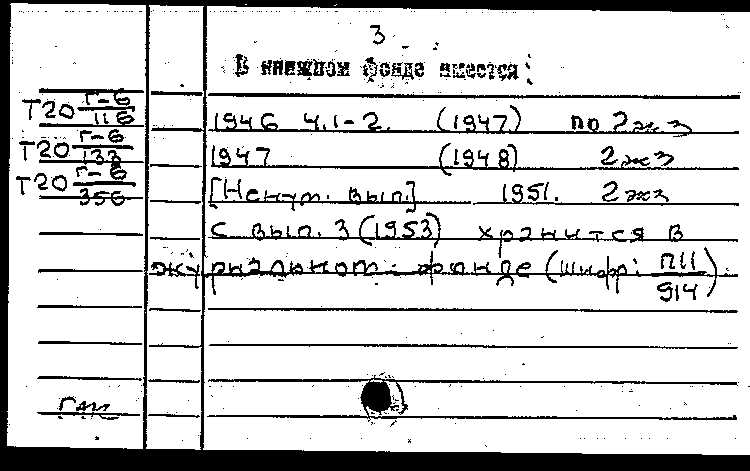 3
В книжном фонде имеется:
Т20 Г-6/116 1946 ч.1-2. (1947) по 2экз
Т20 Г-6/133 1947 (1948) 2экз
Т20 Г-6/356 [Ненум. вып.] 1951. 2экз
с вып. 3 (1953) хранится в
журнальном фонде (шифр: П11/914).